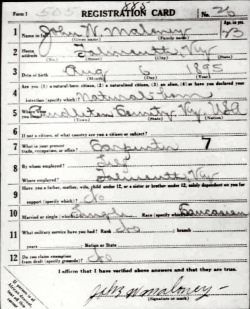 Form 1 505 REGISTRATION CARD No. 26
1 Name in full John W Maloney Age, in yrs.
(Given name) (Family name)
2 Home address Ky
(No.) (Street) (City) (State)
3 Date of birth Aug 6 1895
(Month) (Day) (Year)
4 Are you (1) a natural-born citizen, (2) a naturalized citizen, (3) an alien, (4) or have you declared your
intention (specify which)?
5 Where were you born? County, Ky USA
6 If not a citizen, of what country are you a citizen or subject?
7 What is your present trade, occupation, or office? Carpenter 7
8 By whom employed?
Where employed? Ky
9 Have you a father, mother, wife, child under 12, or a sister or brother under 12, solely dependent on you for
support (specify which)? No
10 Married or single (which)? Single Race (specify which)? Caucasian
11 What military service have you had? Rank No ; branch
years ; Nation or State
12 Do you claim exemption from draft (specify grounds)? No
I affirm that I have verified above answers and that they are true.
John W Maloney
(Signature or mark)